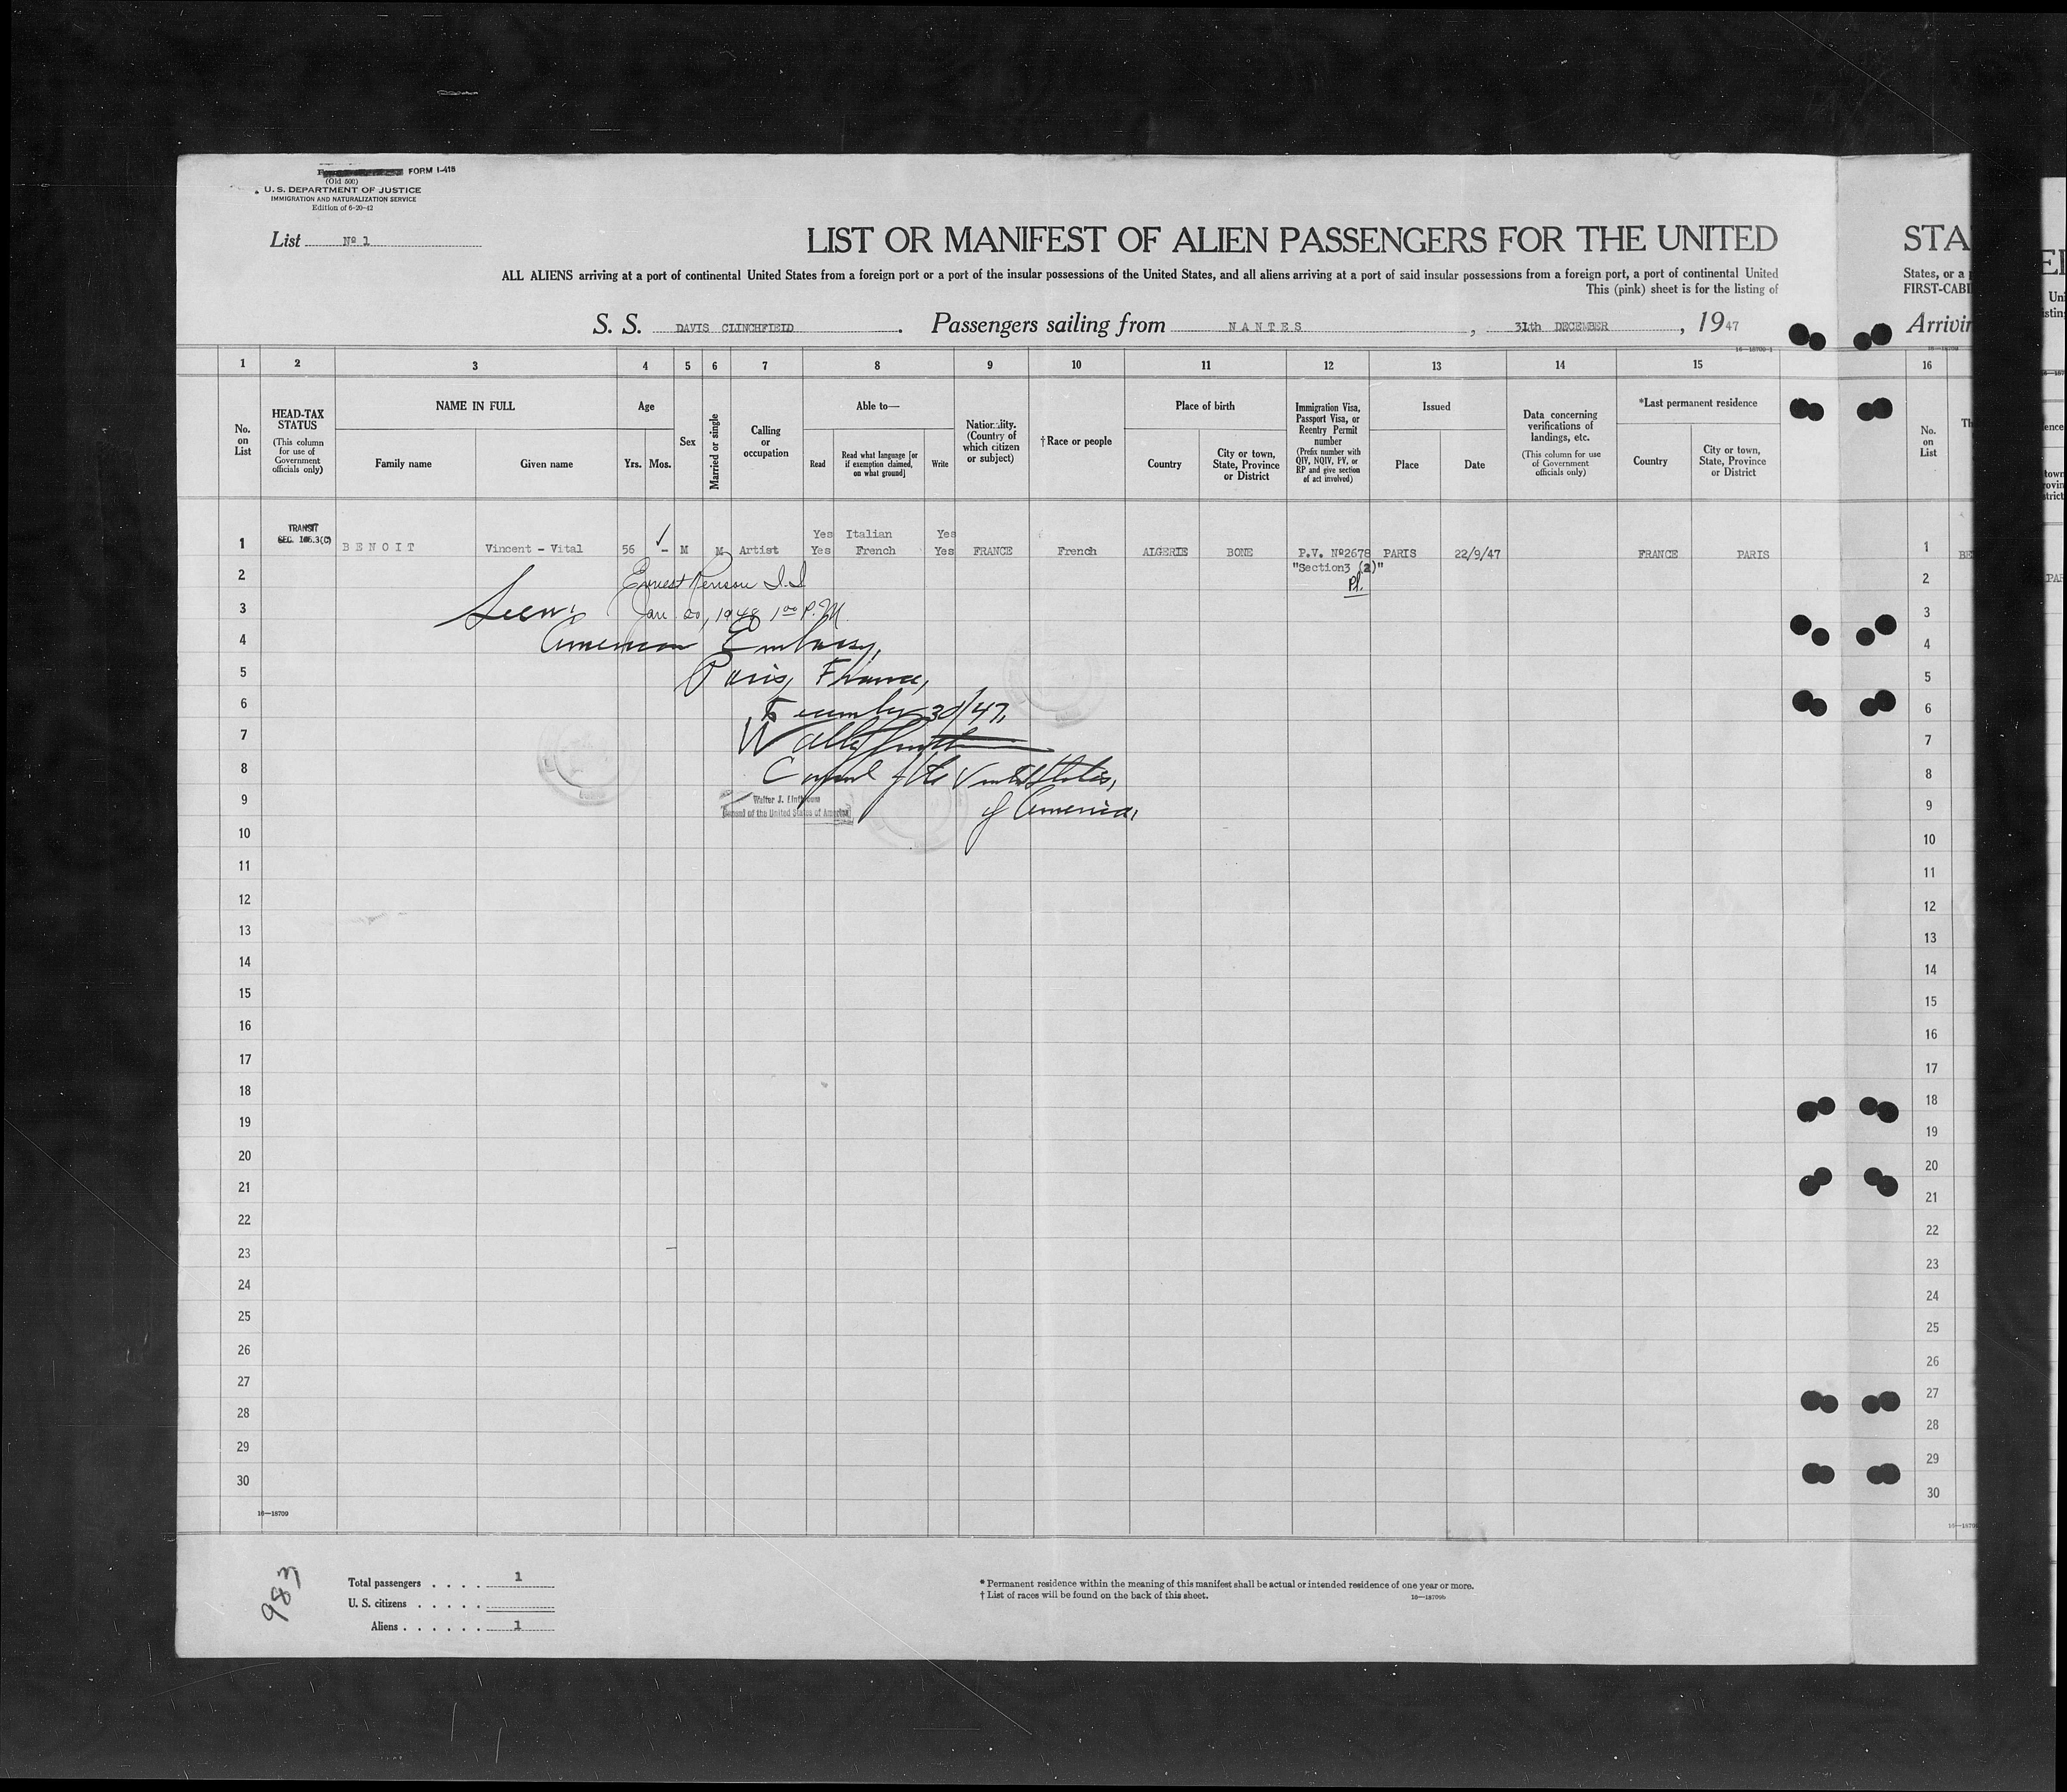 FORM I-415
(Old 500)
U. S. DEPARTMENT OF JUSTICE
IMMIGRATION AND NATURALIZATION SERVICE
Edition of 6-20-42
List Nº 1
LIST OR MANIFEST OF ALIEN PASSENGERS FOR THE UNITED
STA
ALL ALIENS arriving at a port of continental United States from a foreign port or a port of the insular possessions of the United States, and all aliens arriving at a port of said insular possessions from a foreign port, a port of continental United
States, or a
This (pink) sheet is for the listing of
FIRST-CABI
S. S. DAVIS CLINCHFIELD. Passengers sailing from NANTES, 31th DECEMBER, 1947
Arrivin
1 2 3 4 5 6 7 8 9 10 11 12 13 14 15 16
No. on List
HEAD-TAX STATUS
(This column for use of Government officials only)
NAME IN FULL
Family name
Given name
Age
Yrs. Mos.
Sex
Married or single
Calling or occupation
Able to—
Read
Read what language [or if exemption claimed, on what ground]
Write
Nationality. (Country of which citizen or subject)
†Race or people
Place of birth
Country
City or town, State, Province or District
Immigration Visa, Passport Visa, or Reentry Permit number
(Prefix number with QIV, NQIV, PV, or RP and give section of act involved)
Issued
Place
Date
Data concerning verifications of landings, etc.
(This column for use of Government officials only)
*Last permanent residence
Country
City or town, State, Province or District
No. on List
Th
TRANSIT
SEC.
Yes Italian Yes
1 BENOIT Vincent - Vital 56 - M M Artist Yes French Yes FRANCE French ALGERIE BONE P.V. Nº2678 PARIS 22/9/47 FRANCE PARIS 1 BE
"Section3 (2)"
2 Ernest I.I 2
3 Seen: Jan 20, 1948 1⁰⁰ P.M. 3
4 American Embassy, 4
5 Paris, France, 5
6 December 30/47, 6
7 7
8 Consul of the United States, 8
9 of America. 9
Walter J. Linthicum
Consul of the United States of America
10 10
11 11
12 12
13 13
14 14
15 15
16 16
17 17
18 18
19 19
20 20
21 21
22 22
23 23
24 24
25 25
26 26
27 27
28 28
29 29
30 30
16—18709
983
Total passengers . . . . 1
U. S. citizens . . . . .
Aliens . . . . . . 1
* Permanent residence within the meaning of this manifest shall be actual or intended residence of one year or more.
† List of races will be found on the back of this sheet.
16—18709b